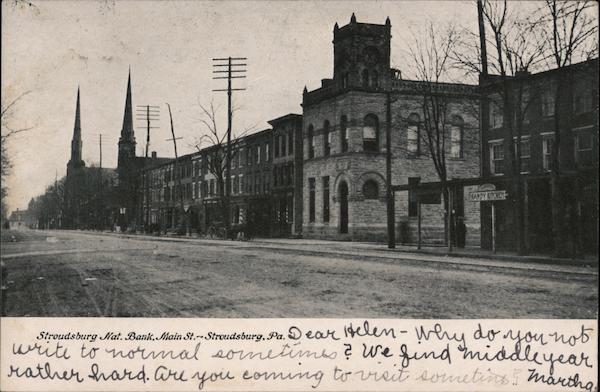 KANDY KITCHEN
Stroudsburg Nat. Bank, Main St.—Stroudsburg, Pa. Dear Helen - Why do you not
write to normal sometimes? We find middle year
rather hard. Are you coming to visit sometime?
March 9